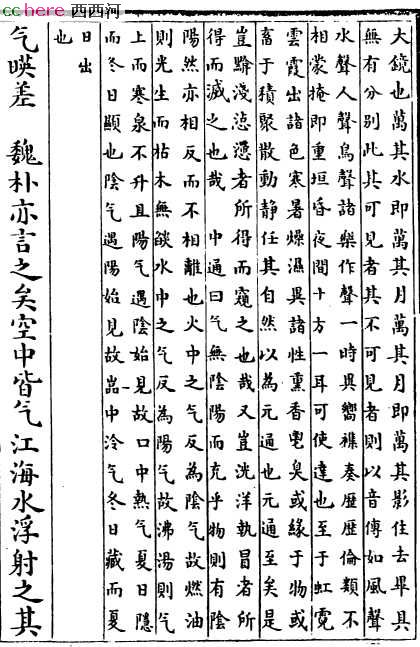 cchere 西西河
大鏡也萬其水即萬其月萬其月即萬其影住去畢具
無有分别此其可見者其不可見者則以音傳如風聲
水聲人聲鳥聲諸樂作聲一時異嚮襍奏歷歷倫類不
相蒙掩即重垣昏夜間十方一耳可使達也至于虹霓
雲霞出諸色寒暑燥濕異諸性熏香臭或緣于物或
畜于積聚散動静任其自然以為元通也元通至矣是
豈黭淺愆懣者所得而窺之也哉又豈洸洋執冒者所
得而滅之也哉 中通曰气無陰陽而充乎物則有陰
陽然亦相反而不相離也火中之气反為陰气故燃油
則光生而枯木無燄水中之气反為陽气故沸湯則气
上而寒泉不升且陽气遇陰始見故口中熱气夏日隱
而冬日顯也陰气遇陽始見故嵓中冷气冬日藏而夏
日出
也
气暎差 魏朴亦言之矣空中皆气江海水浮射之其